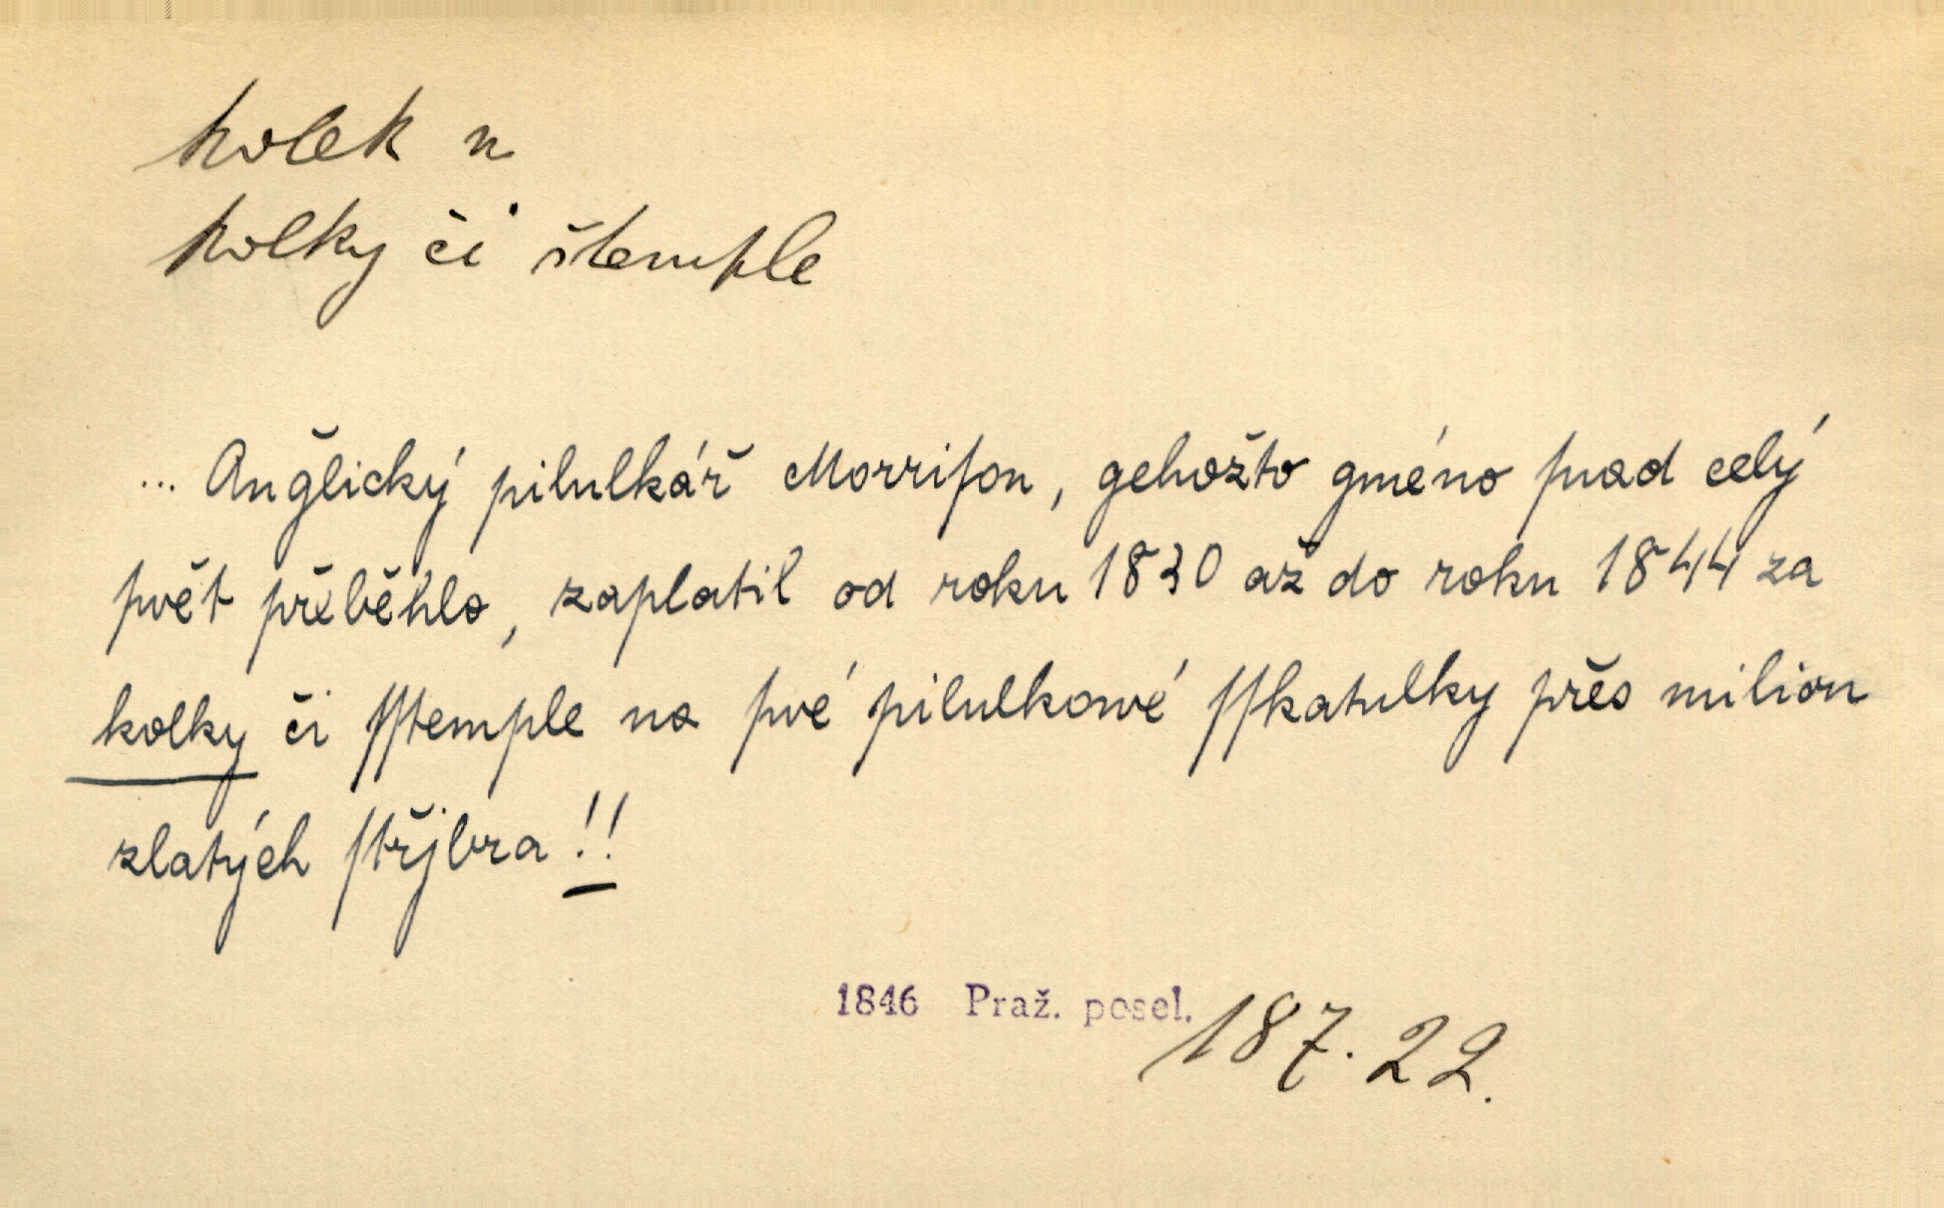 kolek n
kolky či štemple
... Anğlický pilulkář Morriſon, gehožto gméno ſnad celý
ſwět přeběhlo, zaplatil od roku 1830 až do roku 1844 za
kolky či ſſtemple na ſvé pilulkowé ſſkatulky přes milion
zlatých ſtřjbra!!
1846 Praž. posel. 187.22.